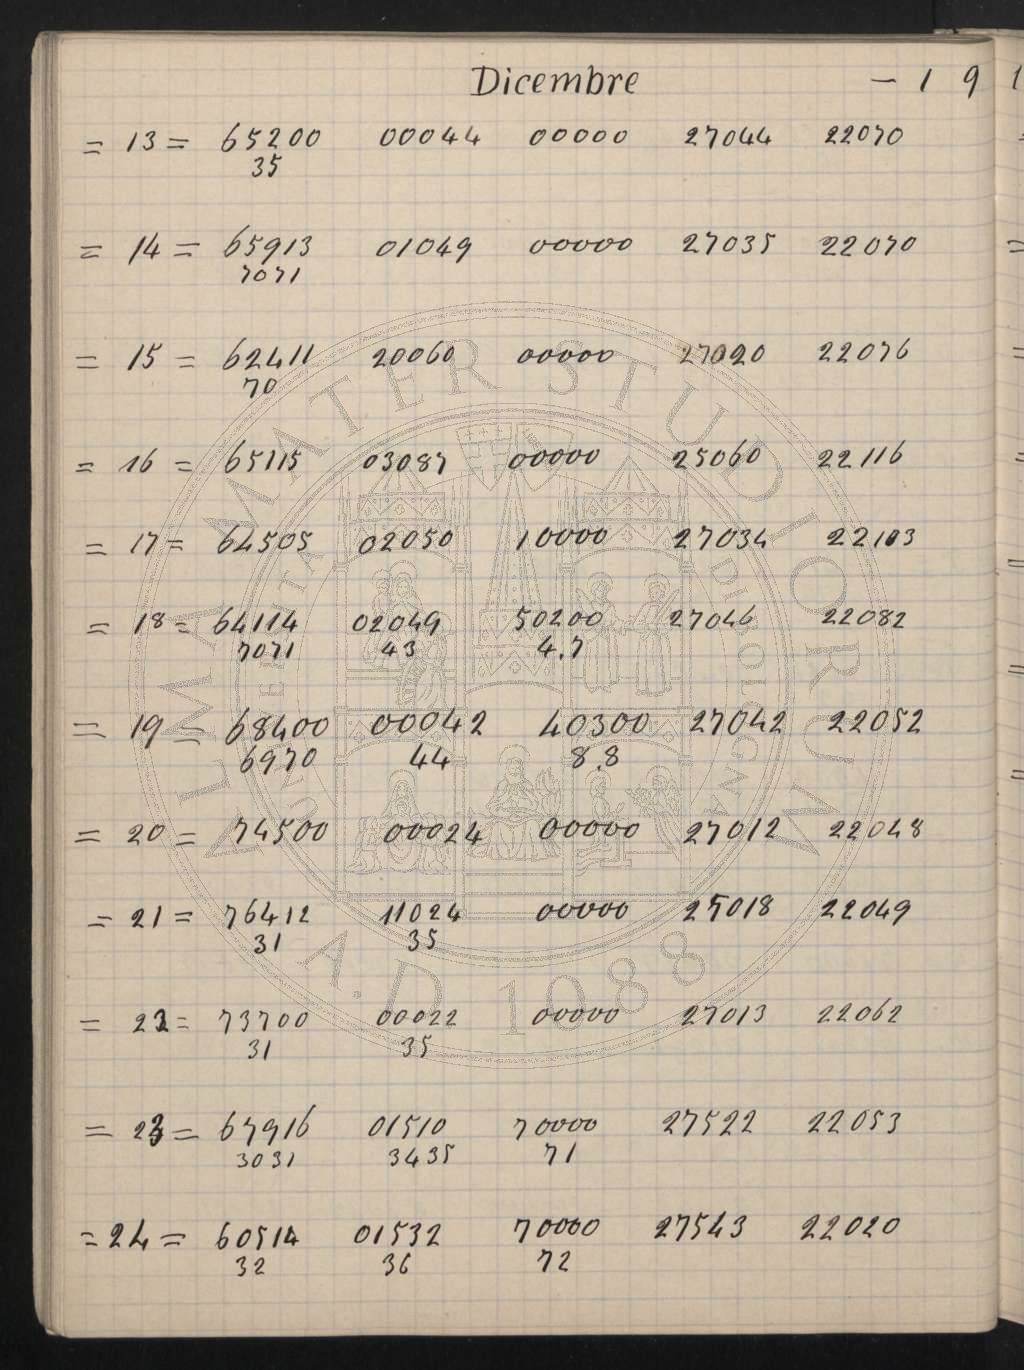 Dicembre — 1 9 1
= 13 = 65200 00044 00000 27044 22070
35
= 14 = 65913 01049 00000 27035 22070
7071
= 15 = 62411 20060 00000 27020 22076
70
= 16 = 65115 03087 00000 25060 22116
= 17 = 64505 02050 10000 27034 22103
= 18 = 64114 02049 50200 27046 22082
7071 43 4.7
= 19 = 68400 00042 40300 27042 22052
6970 44 8.8
= 20 = 74500 00024 00000 27012 22048
= 21 = 76412 11024 00000 25018 22049
31 35
= 22 = 73700 00022 00000 27013 22062
31 35
= 23 = 67916 01510 70000 27522 22053
3031 3435 71
= 24 = 60514 01532 70000 27543 22020
32 36 72
ALMA MATER STUDIORUM
A.D. 1088